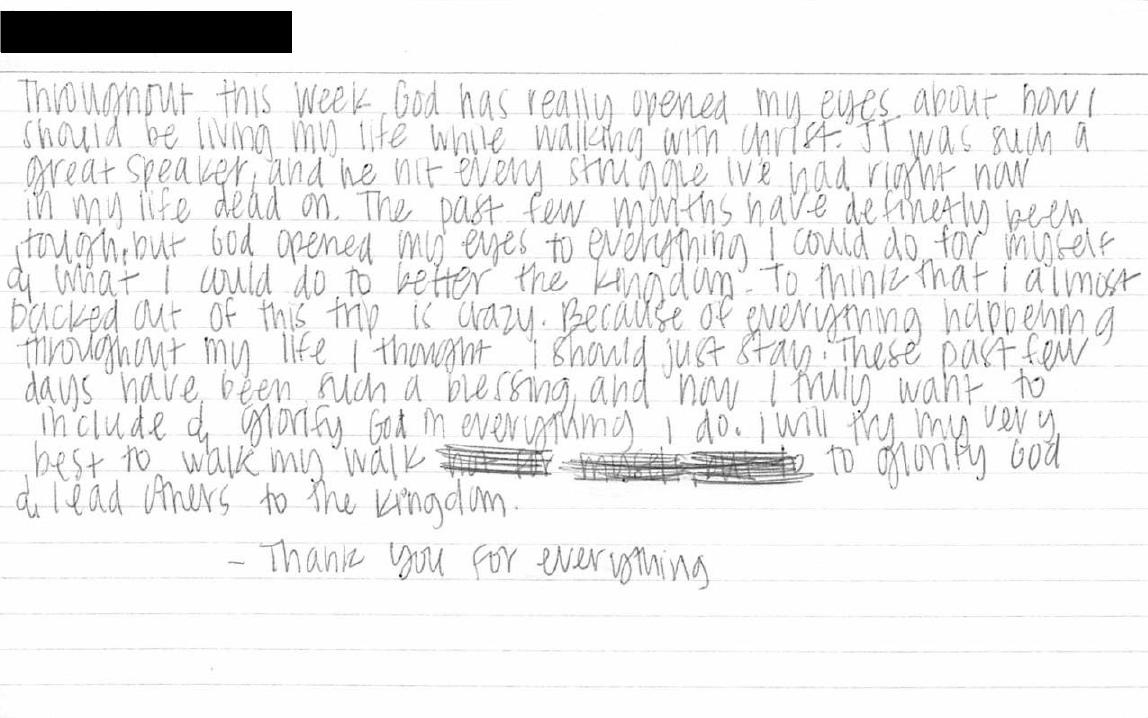 Throughout this week God has really opened my eyes about how I
should be living my life while walking with Christ. JT was such a
great speaker, and he hit every struggle I've had right now
in my life dead on. The past few months have definetly been
tough, but God opened my eyes to everything I could do for myself
& what I could do to better the kingdom. To think that I almost
backed out of this trip is crazy. Because of everything happening
throughout my life I thought I should just stay. These past few
days have been such a blessing, and now I truly want to
include & glorify God in everything I do. I will try my very
best to walk my walk to glorify God
& lead others to the kingdom.
- Thank you for everything